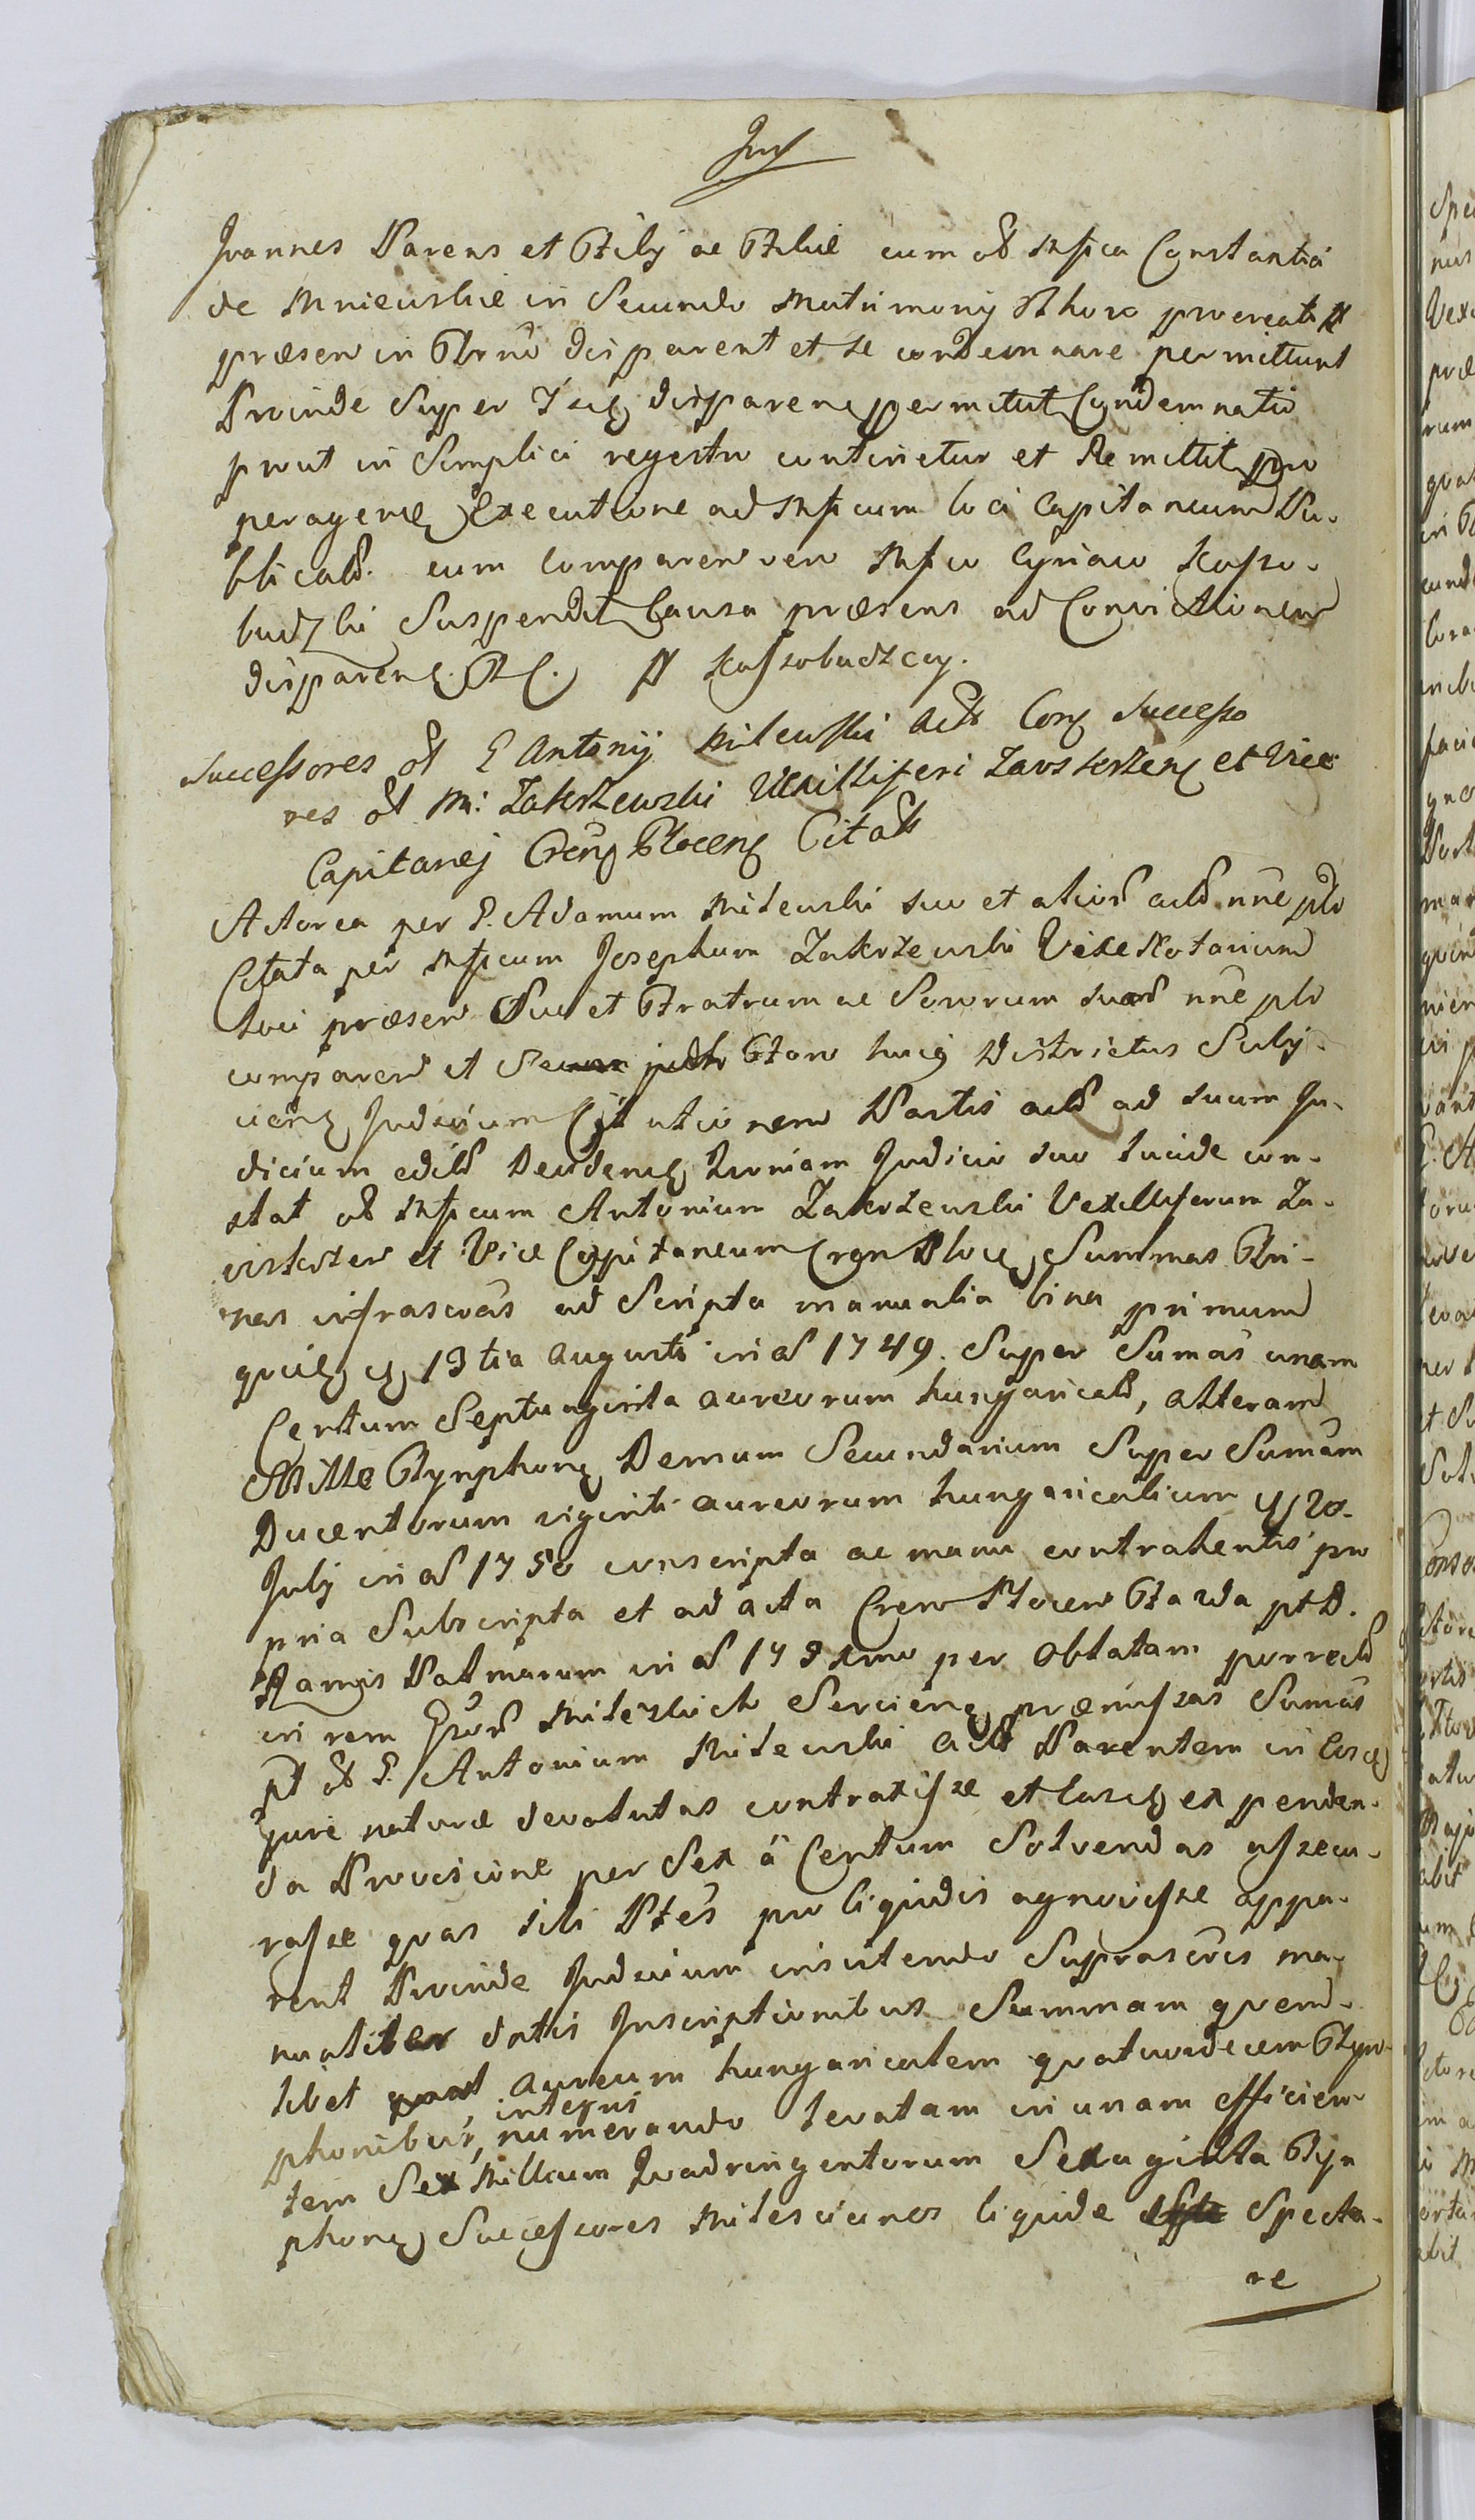 Joannes Parens et Filij ac Filiae cum olim Mfica Constantia
de Mniewskie in Secundo Matrimonij Thoro procreati
praesen in Trno disparent et se condemnare permittunt
Proinde Super Iisq disparen permittit Condemnatio
prout in Simplici regestro continetur et Remittit pro
peragenq Executione ad Mficum loci Capitaneum Pu-
blicatd. cum comparen vero Mfico Cyriaco Koszo-
budzki Suspendit Causa praesens ad Convictionem
disparenq. Koszobudzcy.
Successores ol G Antonij Milewski Actr Conq Successo
res ol M: Zakrzewski Vexilliferi Zawskrzenq et Vice
Capitanej Crenq Plocenq Citatr
Actorea per G. Adamum Milewski suo et aliord actd nne plr
Citata per Mficum Josephum Zakrzewski Vice Notarium
loci praesen Suo et Fratrum ac Sororum suard nne plr
comparen et huig Districtus Subij-
cienq Judicium Citationem Partis actd ad suum Ju-
dicium editd Decidenq Qvoniam Judicio suo lucide con-
stat ol Mficum Antonium Zakrzewski Vexilliferum Za-
wskrzen et Vice Capitaneum Cren Ploceq Summas Tri-
nas infrascras ad Scripta manualia bina primum
13 tia Augusti in ao 1749. Super Sumas unam
Centum Septuaginta aureorum hungaricald, alteram
Mille Tynphonq Demum Secundarium Super Sumam
Ducentorum viginti aureorum hungaricalium 20.
July in ao 1750 conscripta ac manu contrahentis pro
pria Subscripta et ad acta Cren Plocen Fa 2da pt D.
Ramis Palmarum in ao 1752 per Oblatam porrectd
in rem Gsord Milewskich Servienq praemissas Sumas
pt ol G. Antonium Milewski Actr Parentem in Eosq
jure naturae devolutas contraxisse et Easq ex penden-
da Provisione per Sex à Centum Solvendas assecu-
rasse qvas sibi Ptes pro liqvidis agnovisse appa-
rent Proinde Judicium insistendo Suprascris ma-
nualiter datis Inscriptionibus Summam qvem-
libet aureum hungaricalem qvatuordecem Tyn-
phonibus integris numerando levatam in unam efficien-
tem Sex Millium Qvadringentorum Sexaginta Tyn
phonq Successores Milescianos liqvide Specta-
re